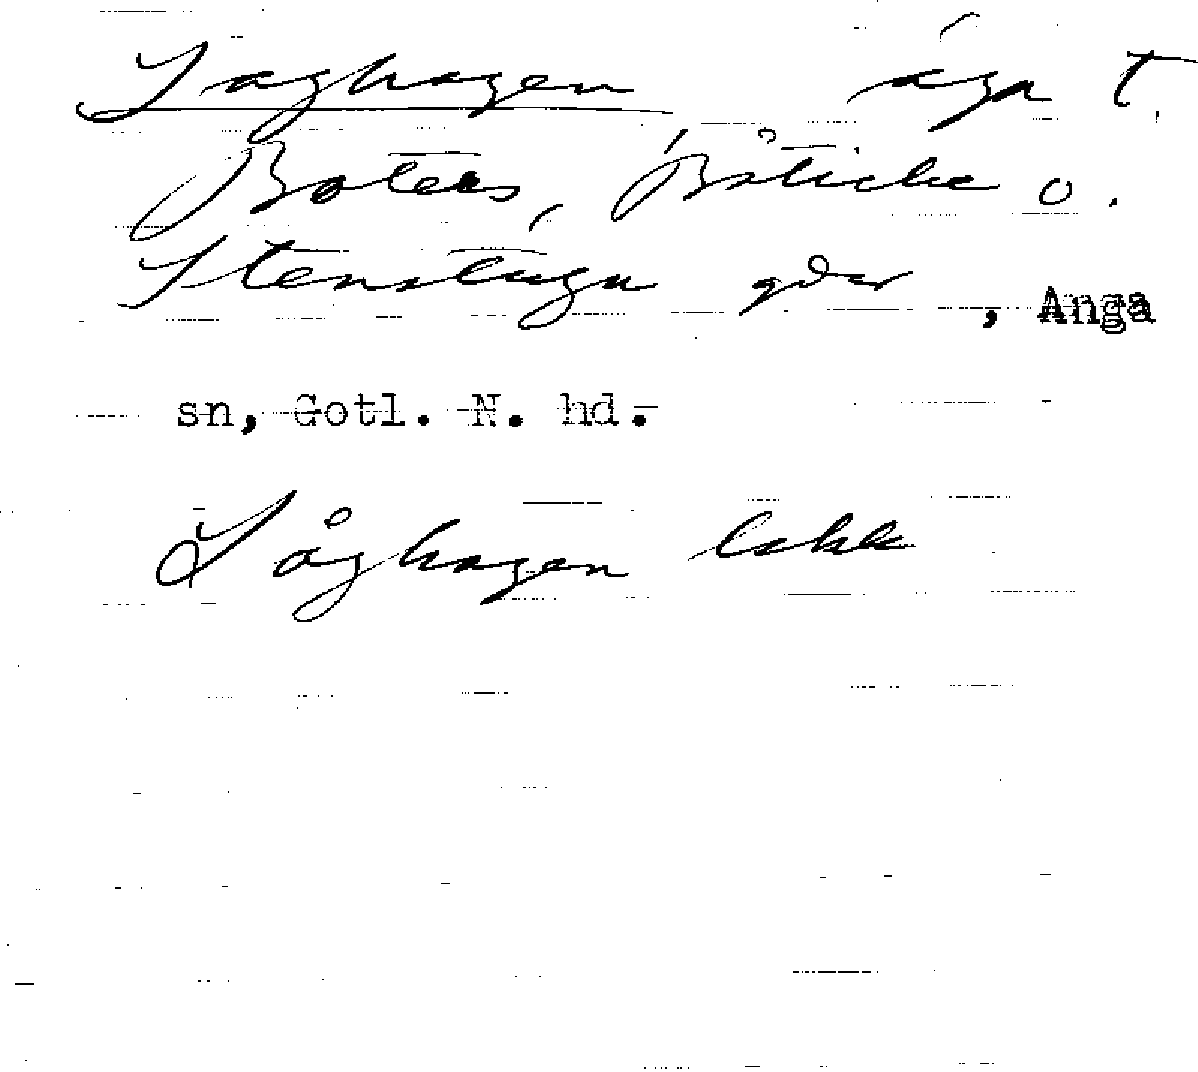 Saghagen äga t.
Boters, Båticke o.
Stenstugu gdar, Anga
sn, Gotl. N. hd.
Såghagen